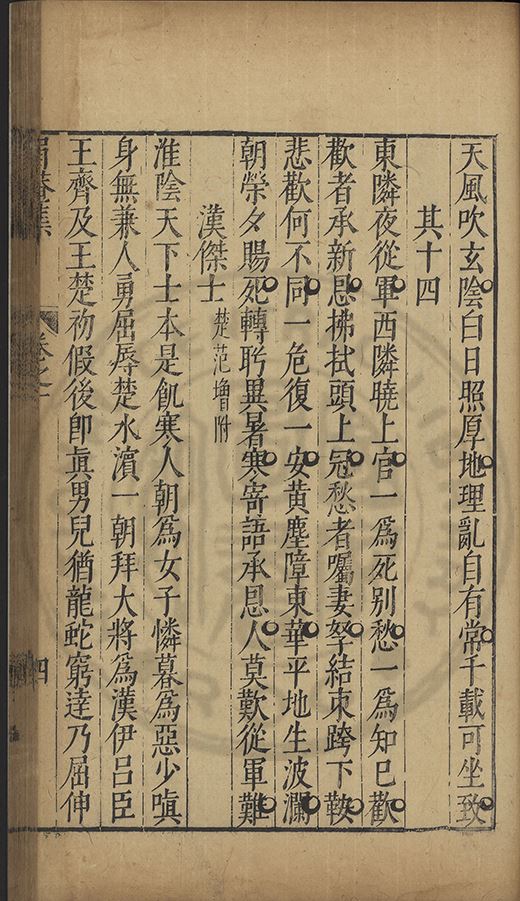 天風吹玄陰白日照厚地理亂自有常千載可坐致
其十四
東隣夜從軍西隣曉上官一爲死别愁一爲知已歡
歡者承新恩拂拭頭上冠愁者囑妻孥結束跨下鞍
悲歡何不同一危復一安黄塵障東華平地生波瀾
朝榮夕賜死轉盻異暑寒寄語承恩人莫歎從軍難
漢傑士 楚范增附
淮陰天下士本是飢寒人朝爲女子憐暮爲惡少嗔
身無兼人勇屈辱楚水濱一朝拜大將爲漢伊吕臣
王齊及王楚初假後卽眞男兒猶龍蛇窮逹乃屈伸
卷之一
四